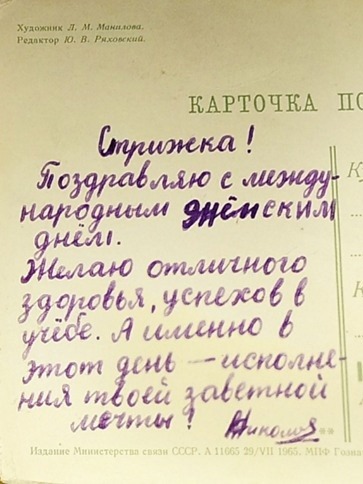 Художник Л. М. Манилова.
Редактор Ю. В. Ряховский.
КАРТОЧКА ПО
Стрижка!
Поздравляю с между-
народным женским
днём.
Желаю отличного
здоровья, успехов в
учёбе. А именно в
этот день — исполне-
ния твоей заветной
мечты!
Издание Министерства связи СССР. А 11665 29/VII 1965. МПФ Гозна